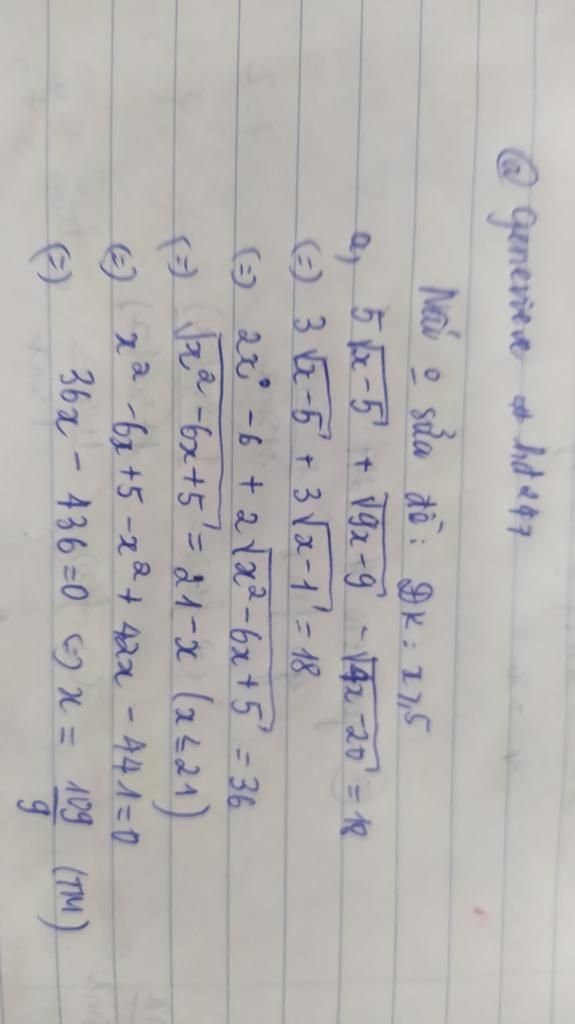 @ Genevieve hđ 247
Nếu o sửa đề: ĐK: x ≥ 5
a, 5√(x-5) + √(9x-9) - √(4x-20) = 18
(=) 3√(x-5) + 3√(x-1) = 18
(=) 2x - 6 + 2√(x² - 6x + 5) = 36
(=) √(x² - 6x + 5) = 21 - x (x ≤ 21)
(=) x² - 6x + 5 - x² + 42x - 441 = 0
(=) 36x - 436 = 0 (=) x = 109/9 (TM)